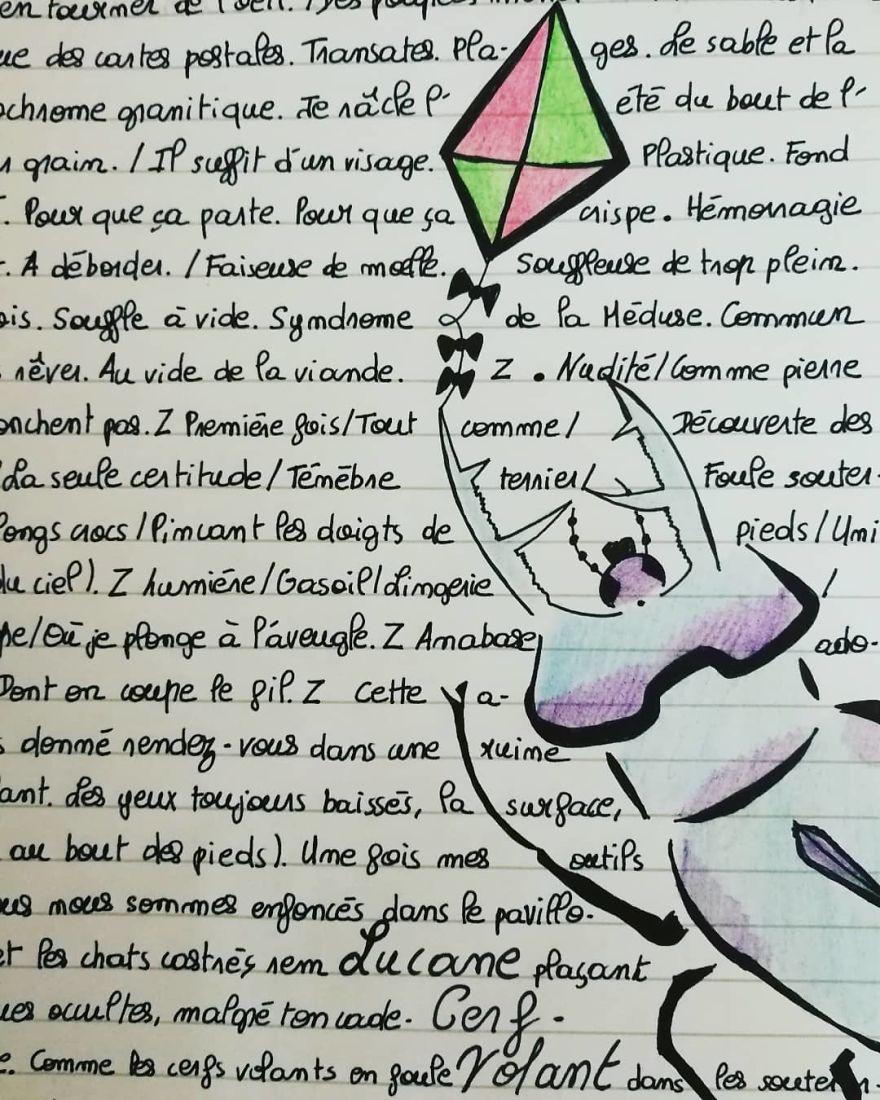 en tourner de l'oeil. / Des
ue des cartes postales. Transates. Pla- ges. Le sable et la
ochrome granitique. Je râcle l'- été du bout de l'-
n grain. / Il suffit d'un visage. Plastique. Fond
. Pour que ça parte. Pour que ça crispe. Hémorragie
. A déborder. / Faiseuse de moelle. Souffleuse de trop plein.
ois. Souffle à vide. Syndrome de la Méduse. Commun
rêver. Au vide de la viande. Z. Nudité/Comme pierre
onchent pas. Z Première fois/Tout comme/ Découverte des
La seule certitude/Ténèbre terrier/ Foule souter-
longs crocs/Pinçant les doigts de pieds/Uni
du ciel). Z humière/Gasoil/Lingerie /
pe/Où je plonge à l'aveugle. Z Anabase, ado-
Dont on coupe le fil. Z Cette a-
s donné rendez-vous dans une ruine
ant. des yeux toujours baissés, la surface,
au bout des pieds). Une fois mes outils
us nous sommes enfoncés dans le pavillo-
et les chats castrés rem Lucane plaçant
ues occultes, malgré ton cade- Cerf-
e. Comme les cerfs volants en foule Volant dans les souter n-